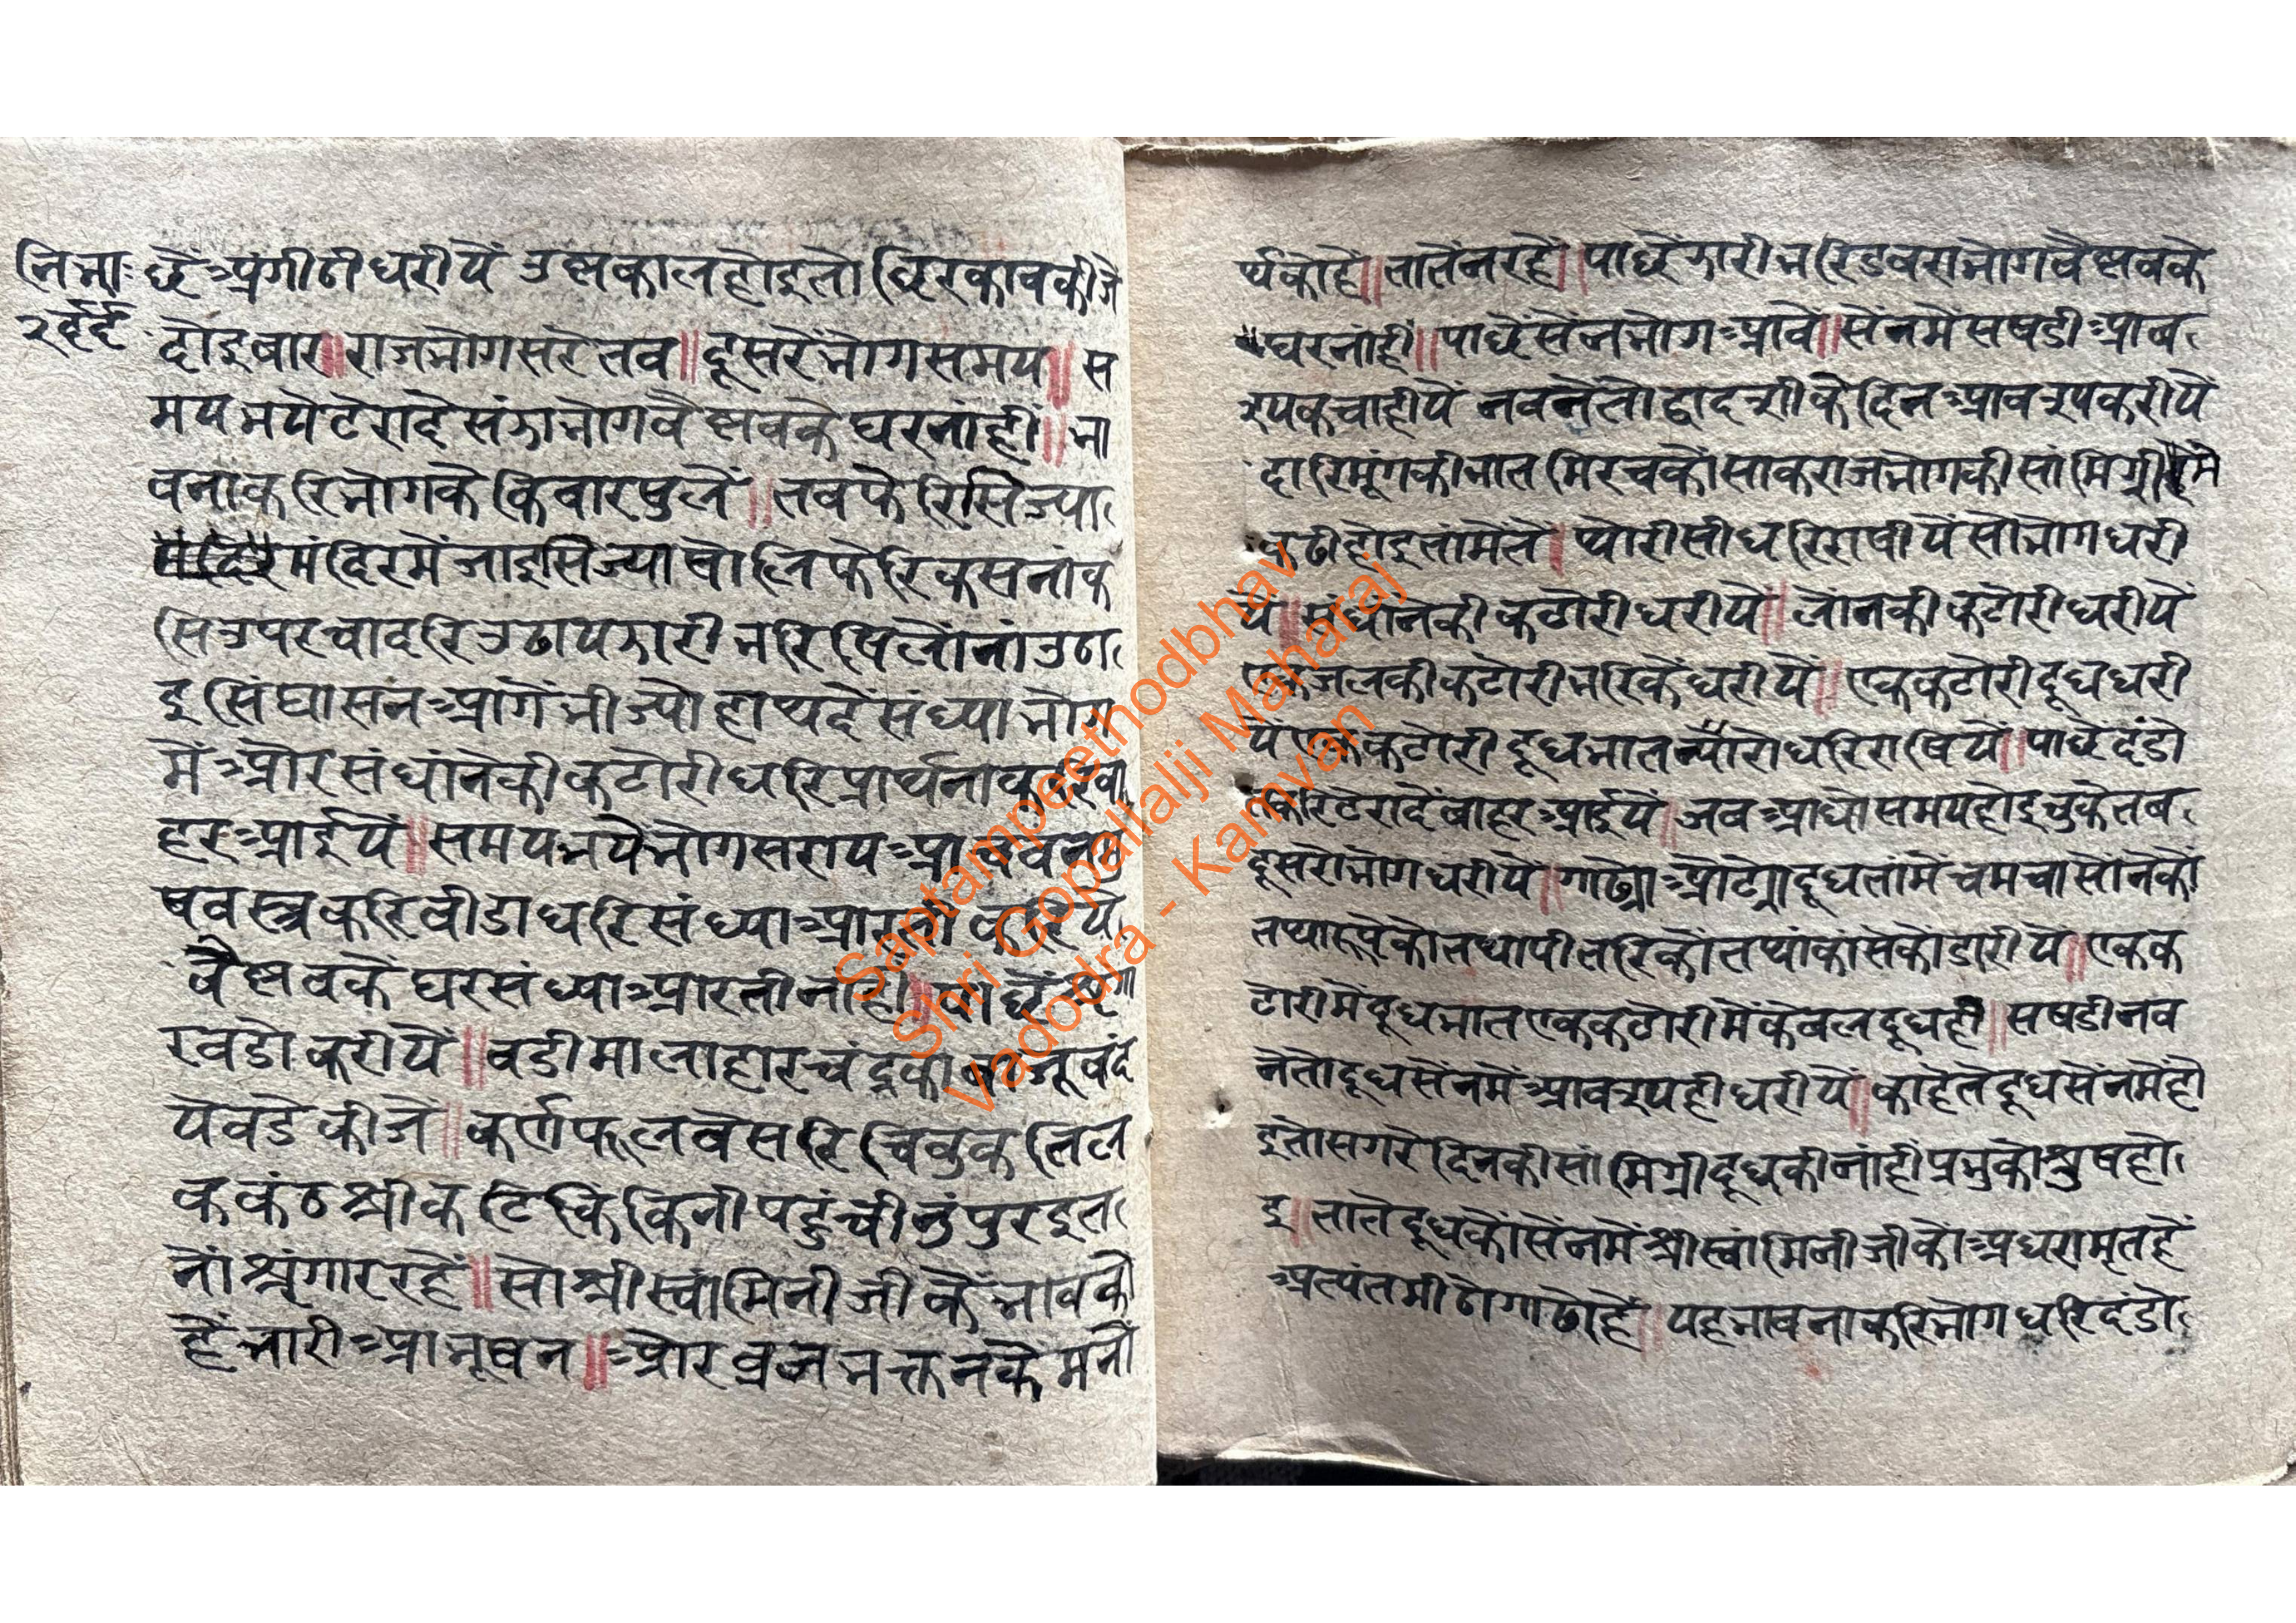 नि भा॰
२ई्ई
छें अंगीठी धरीयें उस्मकाल होइ तो छिरकाव कीजे
दोइ बार॥ राजभोग सरे तब॥ दूसरें भोग समय॥ स
मय भयेंटेरा दे संझा भोग वैस्नव के घर नांही॥ भा
वना करि भोग के किवार षुलें॥ तव फेरि सिज्या
मंदिरमें जाइ सिज्या षोलि फेरि कसनां क
सि उपर चादरि उढाय झारी भरि षिलोंनां उठा
इ सिंघासन आगें भी ज्यो हाथ दे संध्या भोग
में ओर संधांने की कटोरी धरि प्रार्थना
हर आईयें॥ समय भयें भोग सराय
ष वस्त्र करि वीडा धरि संध्या आरती
वैस्नव के घर संध्या आरती नांही॥ पाछें
र वडो करीयें॥ वडी माला हार चंद्रका वाजूबंद
ये वडे कीजें॥ कर्णफूल वेसरि चिवुक तिल
क कंठश्री कटि किंकिनी पहुंची नुंपुर इत
नों श्रृंगार रहें॥ सो श्री स्वामिनीजी के भाव को
हें भारी आभूषन॥ ओर व्रजभक्तन के मनो
र्थ को हें॥ तातें न रहें॥ पाछें झारी भरि डवरा भोग वैस्नव के
घर नांही॥ पाछें सेंन भोग आवें॥ सेंनमें सषडी आव
श्यक चाहीयें न वनें तो द्वादशी के दिन आवश्य करीयें
दारि मूंग की भात मिरच कों साक राजभोग की सांमिग्री में
काढी होइ तामें तें॥ थोरी सी धरि राषीयें सो भोग धरी
यें॥ संधांने की कटोरी धरीयें॥ लोंन की कटोरी धरीयें
एक जल की कटोरी भरिकें धरीयें॥ एक कटोरी दूध धरी
यें एक कटोरी दूध भात न्यारो धरि राषियें॥ पाछें दंडो
त करि टेरा दें बाहर आईयें॥ जव आधो समय होइ चुके तब
दूसरो भोग धरीयें॥ गाढ्यो ओट्यो दूध तांमें चमचा सोंने कों
तथा रूपे को तथा पीतरि कों तथा कांसे को डारीयें॥ एक क
टोरी में दूध भात एक कटोरी में केवल दूध ही॥ सषडी न व
नें तो दूध सेंनमें आवश्य ही धरीयें॥ काहे तें दूध सेंनमें हो
इ तो सगरे दिन की सांमिग्री दूध की नांही प्रभु को श्रुष हो
इ॥ तातें दूध कों सेंनमें श्री स्वांमिनीजी को अधरामृत हें
अत्यंत मीठो गाढो हें॥ यह भावना करि भोग धरि दंडो
Saptampeethodbhav
Shri Gopallalji Maharaj
Vadodra - Kamvan